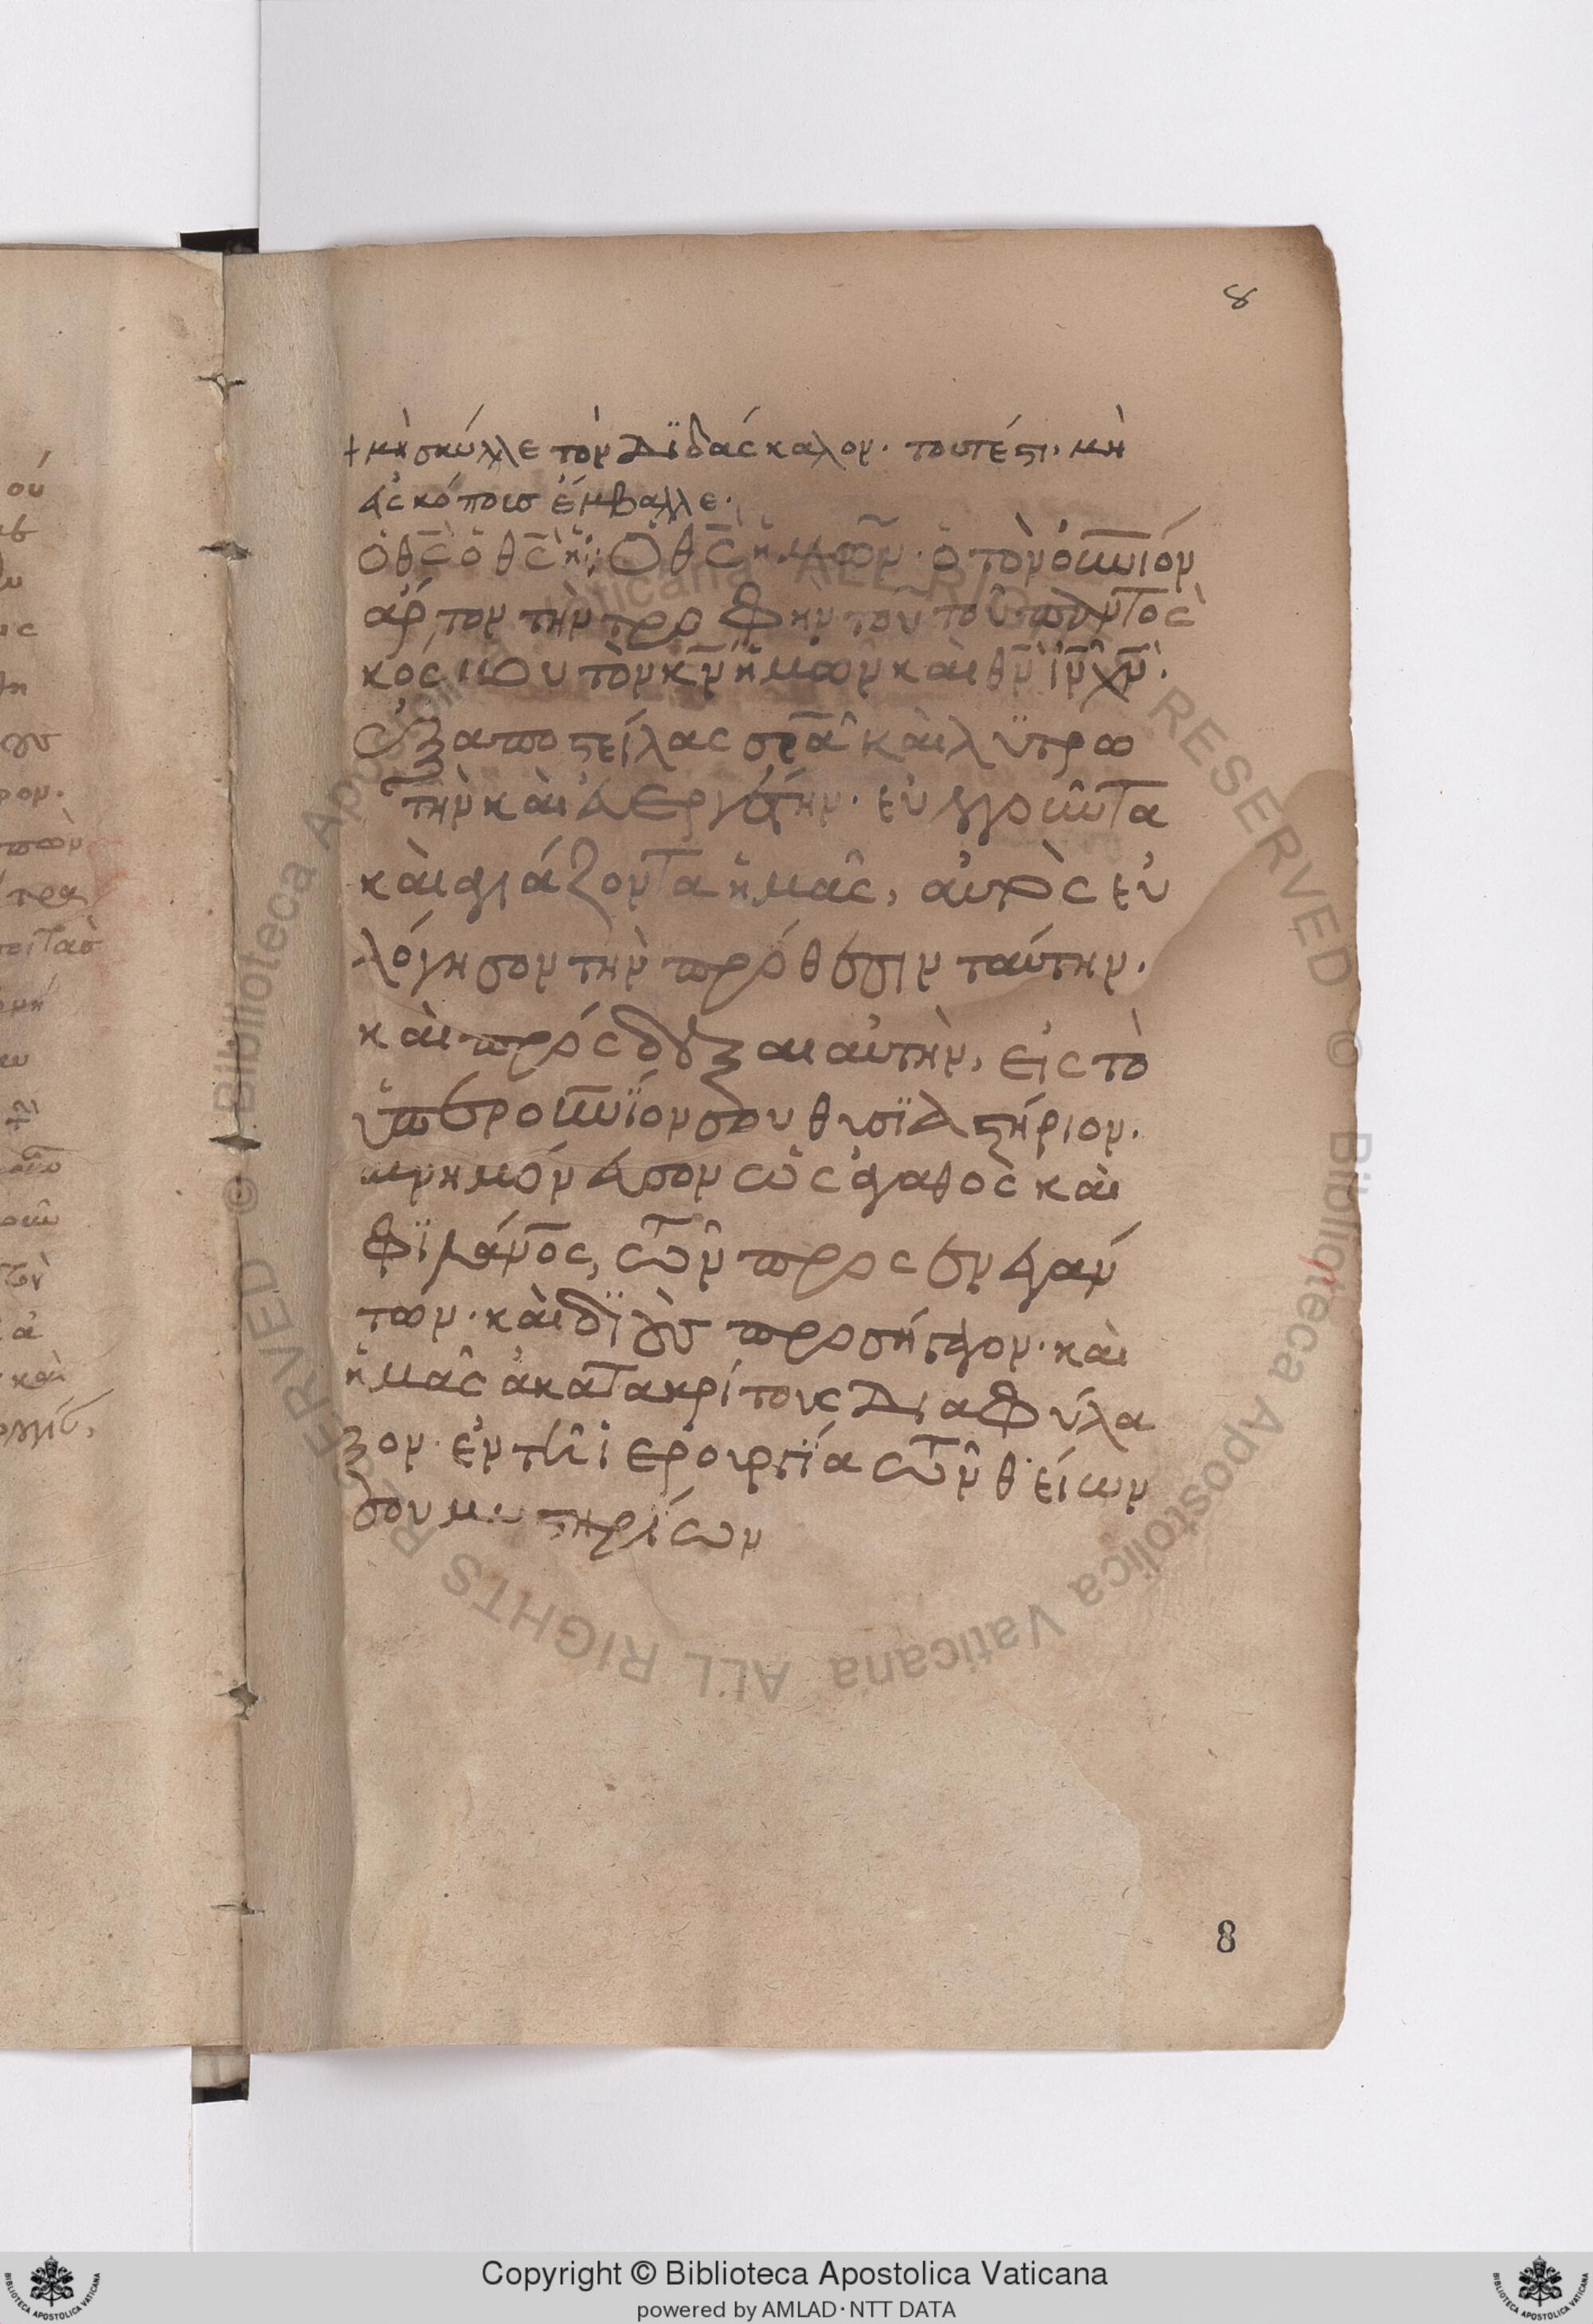 8
+ μὴ σκύλλε τὸν Διδάσκαλον. τουτέστι, μὴ
εἰς κόποις ἔμβαλλε.
Ὁ θς ὁ θς ἡ: Ὁ θς ἡμῶν. ὁ τὸν οὐνιόν
ἄρτον τὴν τροφὴν τοῦ τοῦ παντὸς
κόσμου τὸν κν ἡμῶν καὶ θν ιν χν.
ἐξαποστείλας σρα καὶ λυτρω
τὴν καὶ εὐεργέτην. εὐλογοῦντα
καὶ ἁγιάζοντα ἡμᾶς, αὐτὸς εὐ
λόγησον τὴν πρόθεσιν ταύτην.
καὶ πρόσδεξαι αὐτὴν, εἰς τὸ
ὑπερουνϊόν σου θυσϊαστήριον.
μνημόνευσον ὡς ἀγαθὸς καὶ
φϊλάνος, τῶν προσενεγκάν
των. καὶ δϊ οὓς προσήγαγον. καὶ
ἡμᾶς ἀκατακρίτους Διαφύλα
ξον. ἐν τῇ ἱερουργΐα τῶν θείων
σου μυστηρίων
8
Copyright © Biblioteca Apostolica Vaticana
powered by AMLAD·NTT DATA